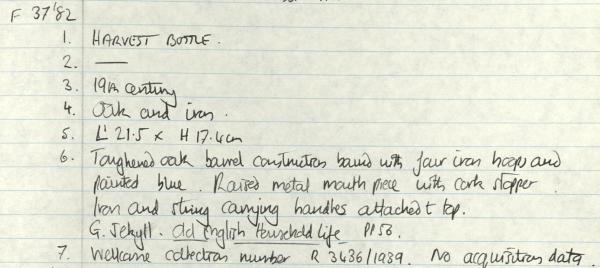 F 37'82
1. HARVEST BOTTLE.
2. —
3. 19th century
4. Oak and iron.
5. L' 21.5 x H 17.4cm
6. Toughened oak barrel construction bound with four iron hoops and
painted blue. Raised metal mouth piece with cork stopper.
Iron and string carrying handles attached t top.
G. Jekyll. Old English Household Life PP 56.
7. Wellcome collection number R 3436/1939. No acquisition data.